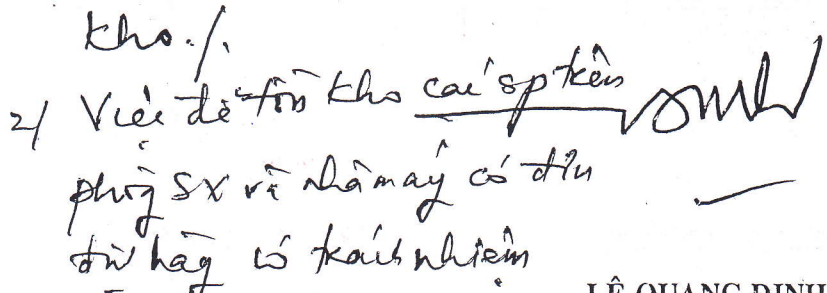 kho./.
2/ Việc để tồn kho các sp trên
phòng SX và nhà máy có đơn
đặt hàng có trách nhiệm
LÊ QUANG ĐỊNH